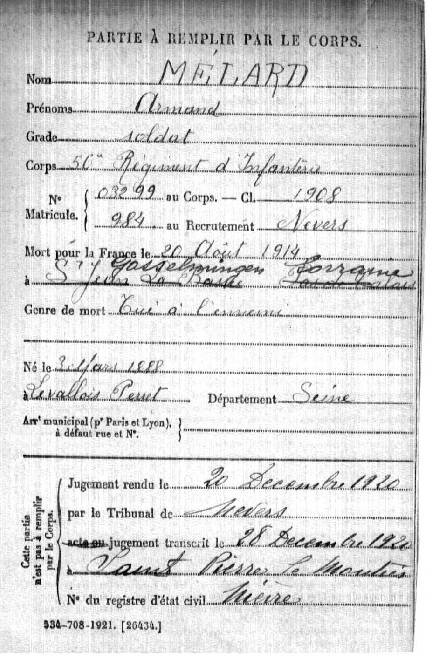 PARTIE À REMPLIR PAR LE CORPS.
Nom MÉLARD
Prénoms Armand
Grade soldat
Corps 56e Régiment d'Infanterie
N° Matricule. { 03299 au Corps. — Cl. 1908
984 au Recrutement Nevers
Mort pour la France le 20 Août 1914
Gosselmingen Lorraine
à St Jean La Pas de Calais
Genre de mort Tué à l'ennemi
Né le 3 Mars 1888
à Levallois Perret Département Seine
Arrt municipal (pr Paris et Lyon), à défaut rue et N°.
Cette partie n'est pas à remplir par le Corps.
Jugement rendu le 20 Decembre 1920
par le Tribunal de Nevers
acte ou jugement transcrit le 28 Decembre 1920
à Saint Pierre le Moutier
N° du registre d'état civil Nièvre
534-708-1921. [26434.]